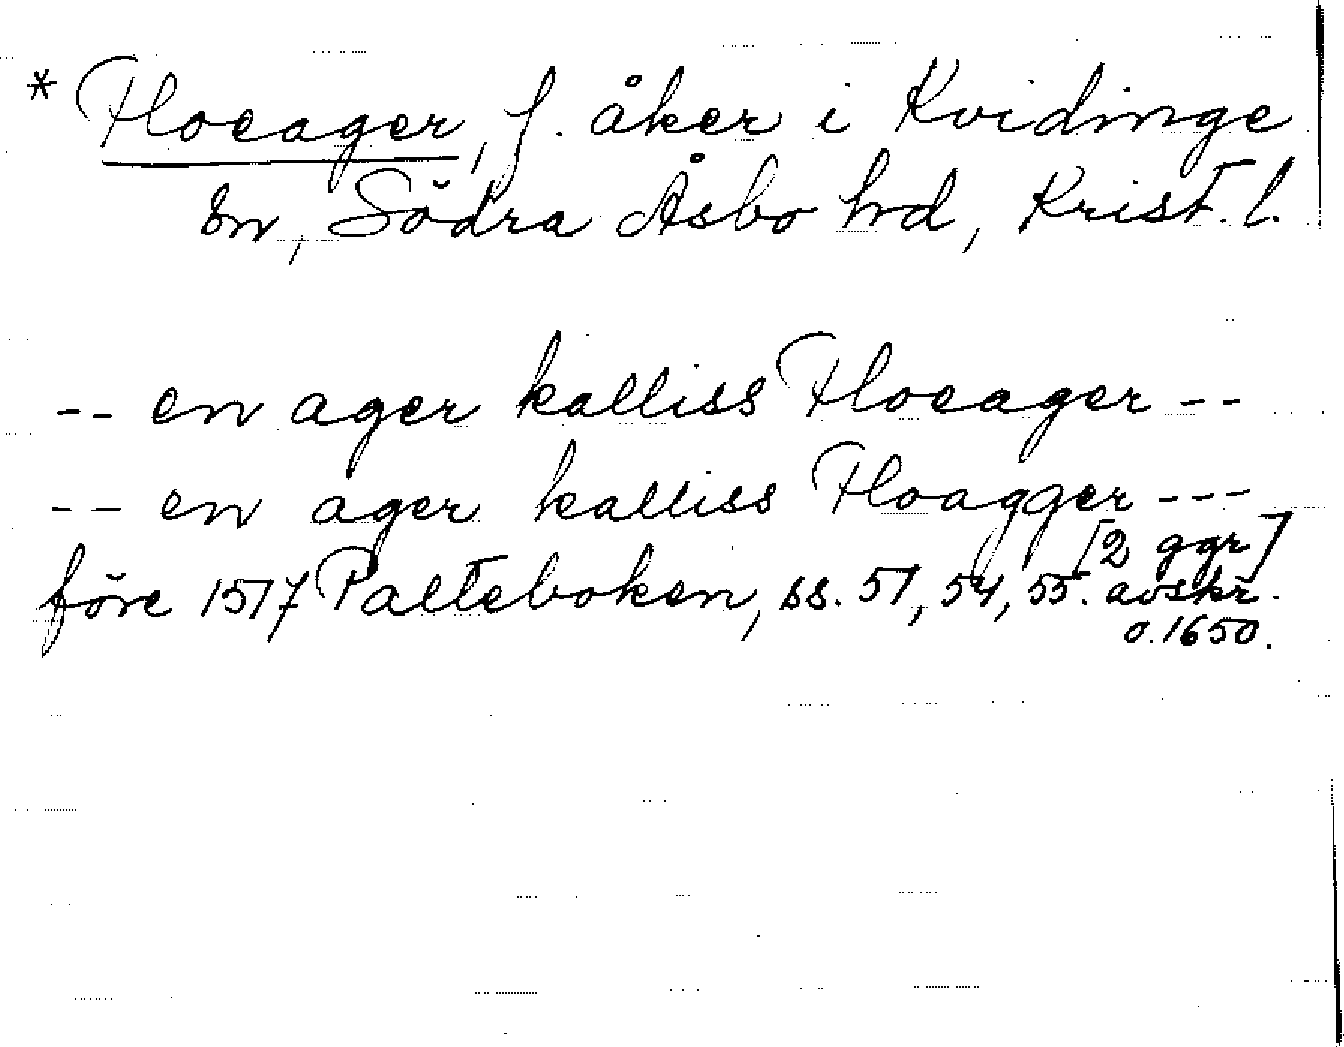 * Floeager, f. åker i Kvidinge
sn, Södra Åsbo hrd, Krist. l.
-- en ager kalliss Floeager --
-- en ager kalliss Floagger ---
[2 ggr]
före 1517 Palteboken, ss. 51, 54, 55. avskr.
o. 1650.